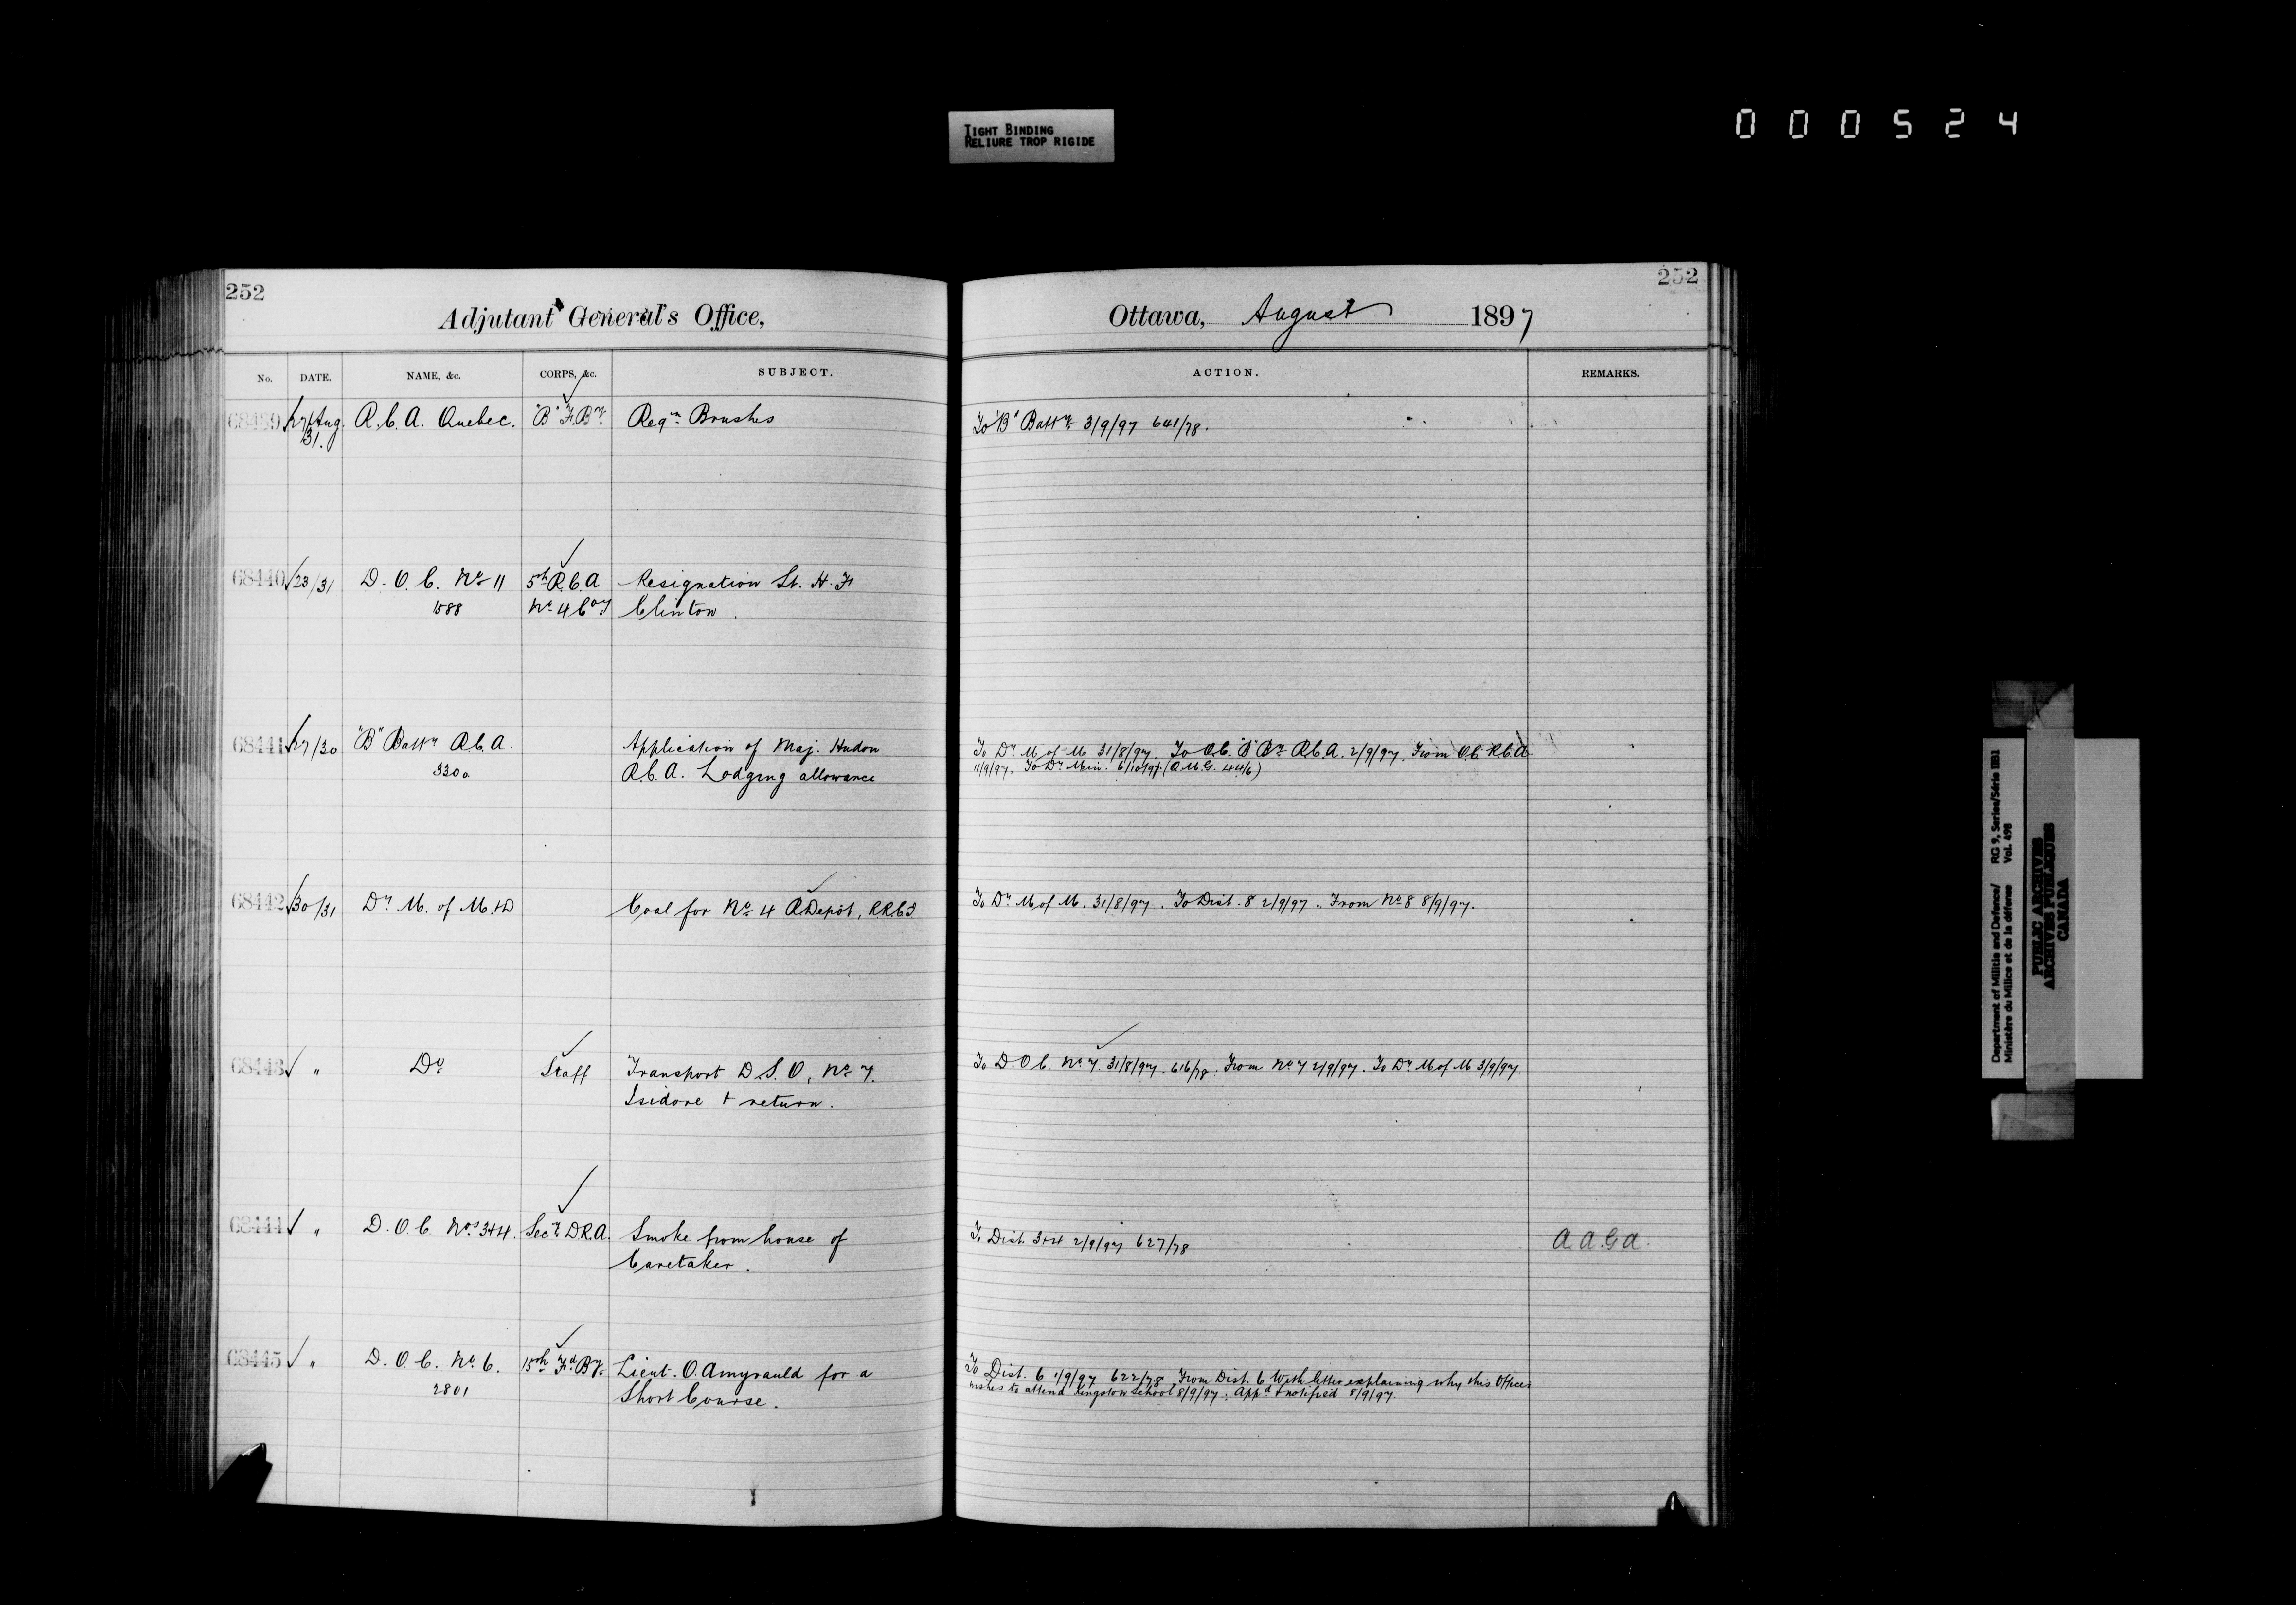 TIGHT BINDING
RELIURE TROP RIGIDE
000524
252
Adjutant General's Office,
No. DATE. NAME, &c. CORPS, &c. SUBJECT.
68439 27/Aug. R.C.A. Quebec. "B" F. By. Reqn Brushes
31.
68440 23/31 D.O.C. No 11 5th R.C.A Resignation Lt. H. F
1588 No 4 Coy Clinton.
68441 27/30 "B" Batty R.C.A. Application of Maj. Hudon
330a R.C.A. Lodging allowance
68442 30/31 Dy M. of M.+D Coal for No 4 R Depôt, R.R.C.I
68443 " Do Staff Transport D.S.O, No 7.
Isidore + return.
68444 " D.O.C. Nos 3+4. Secy D.R.A. Smoke from house of
Caretaker.
68445 " D.O.C. No 6. 15th Fd By. Lieut. O. Amyrauld for a
2801 Short Course.
252
Ottawa, August 1897
ACTION. REMARKS.
To "B" Batty 3/9/97 641/78.
To Dy M of M 31/8/97. To O.C. "B" By R.C.A. 2/9/97. From O.C. R.C.A
11/9/97. To Dy Min. 6/10/97. (Q.M.G. 44/6)
To Dy M of M. 31/8/97. To Dist. 8 2/9/97. From No 8 8/9/97.
To D.O.C. No 7. 31/8/97. 616/78. From No 7 2/9/97. To Dy M of M 3/9/97.
To Dist. 3+4 2/9/97 627/78 A.A.G.A.
To Dist. 6 1/9/97 622/78 From Dist. 6 with letter explaining why this Officer
wishes to attend Kingston School 8/9/97. Appd + notified 8/9/97.
Department of Militia and Defence/ RG 9, Series/Série IIB1
Ministère du Milice et de la défense Vol. 498
PUBLIC ARCHIVES
ARCHIVES PUBLIQUES
CANADA